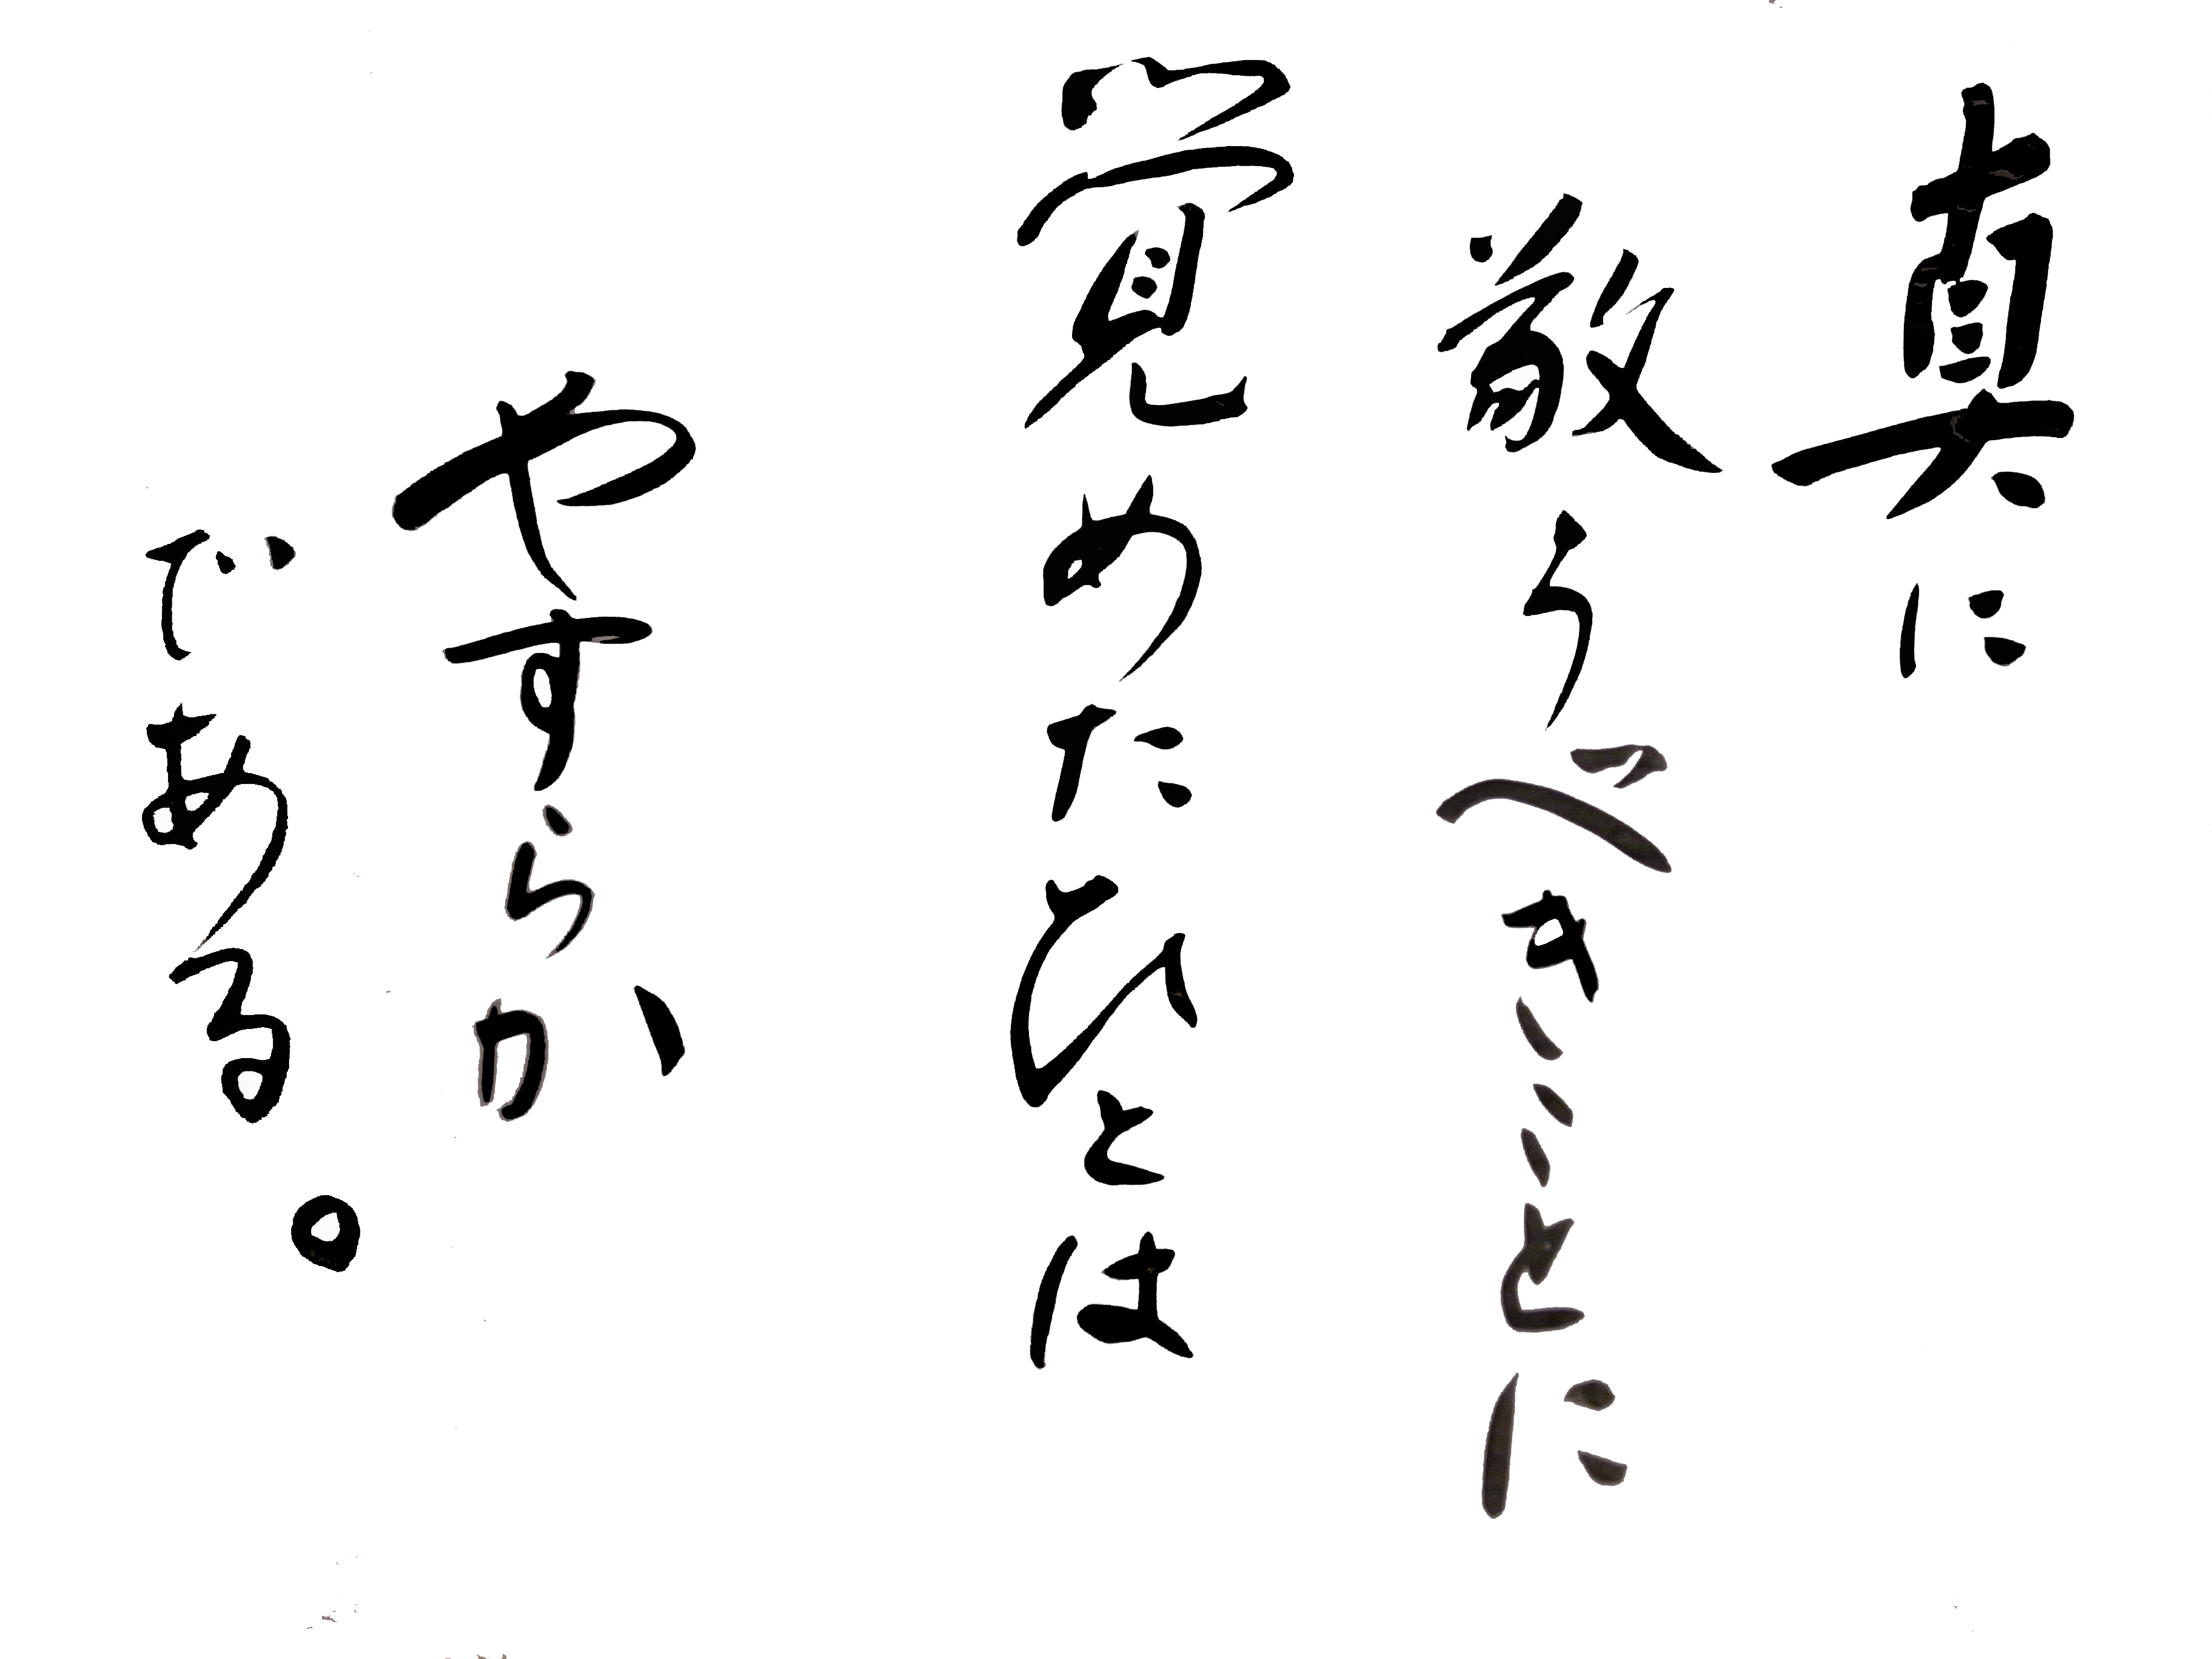 真に
敬うべきことに
覚めたひとは
やすらか
である。